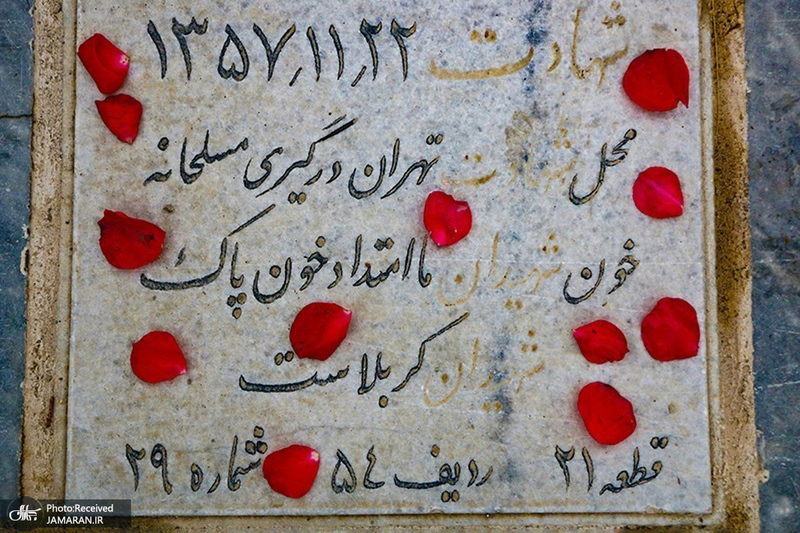 شهادت ۱۳۵۷٫۱۱٫۲۲
محل شهادت تهران درگیری مسلحانه
خون شهیدان ما امتداد خون پاک
شهیدان کربلاست
قطعه ۲۱ ردیف ۵۴ شماره ۲۹
Photo:Received
JAMARAN.IR